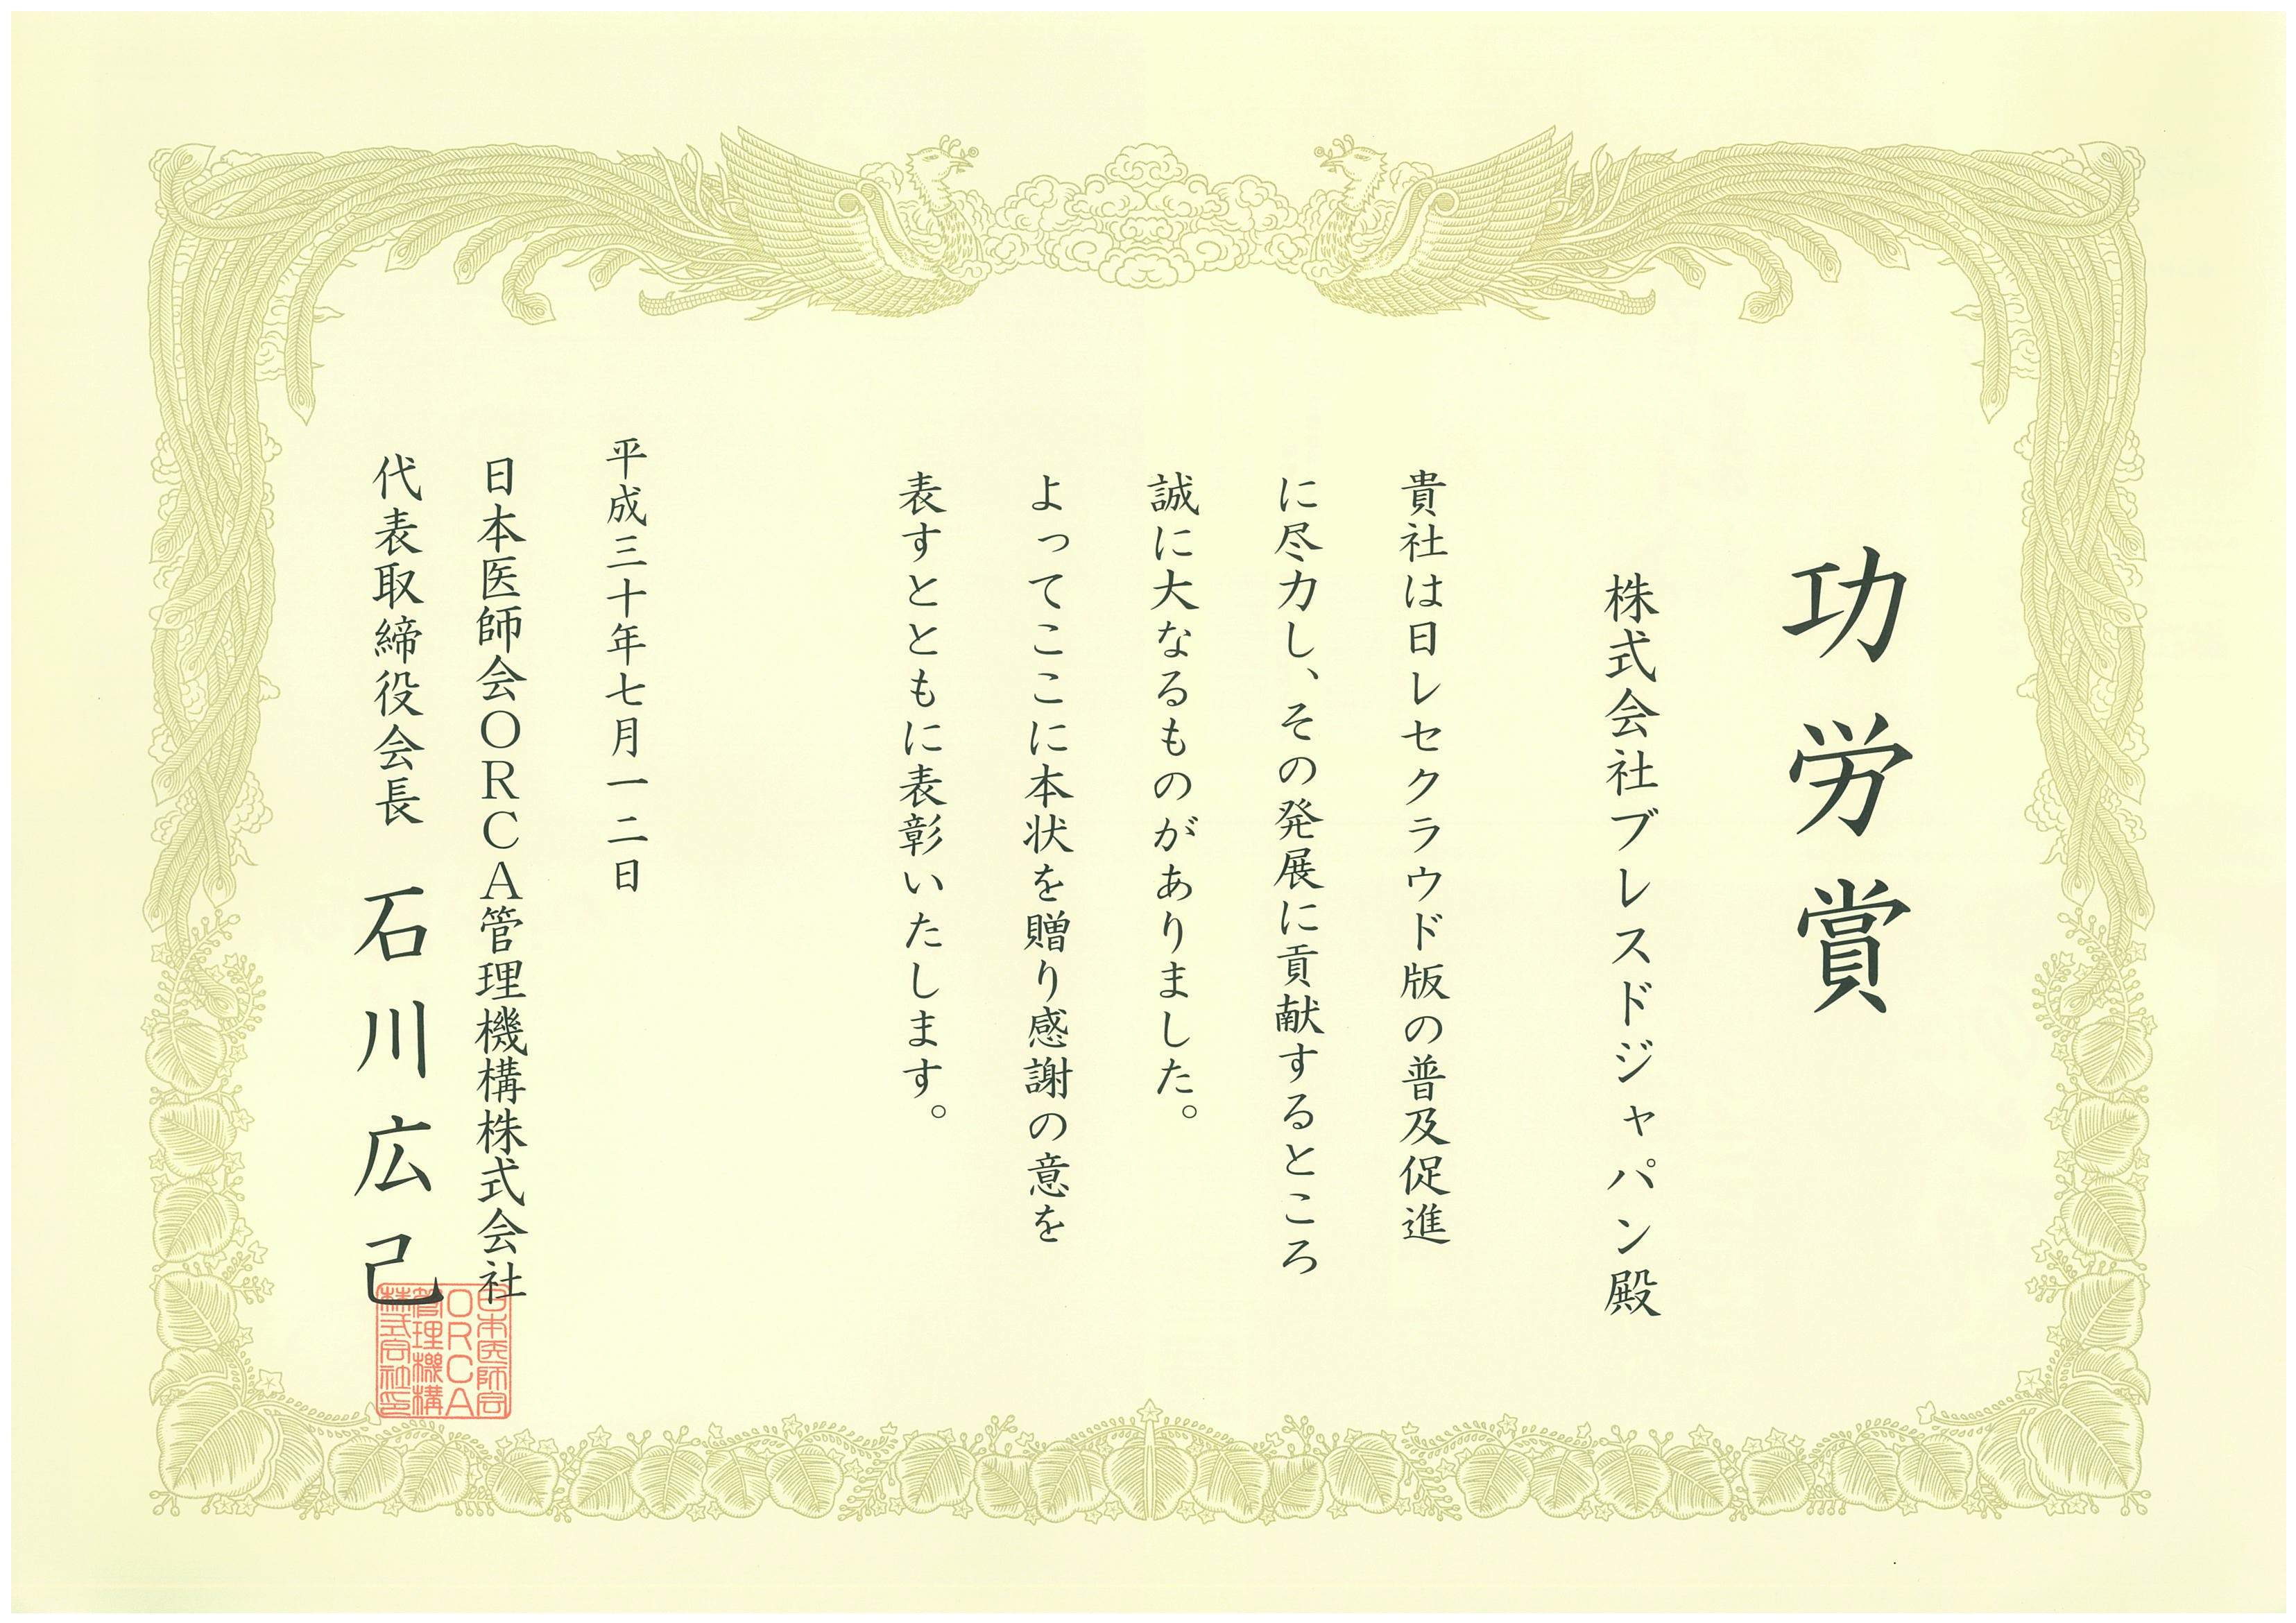 功労賞
株式会社ブレスドジャパン殿
貴社は日レセクラウド版の普及促進
に尽力し、その発展に貢献するところ
誠に大なるものがありました。
よってここに本状を贈り感謝の意を
表すとともに表彰いたします。
平成三十年七月一二日
日本医師会ORCA管理機構株式会社
代表取締役会長 石川広己
日本医師会
ORCA
管理機構
株式会社印